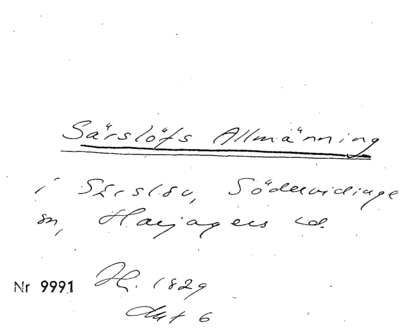 Särslöfs Allmänning
i Särslöv, Södervidinge
sn, Harjagers hd.
Nr 9991 H. 1829
akt 6